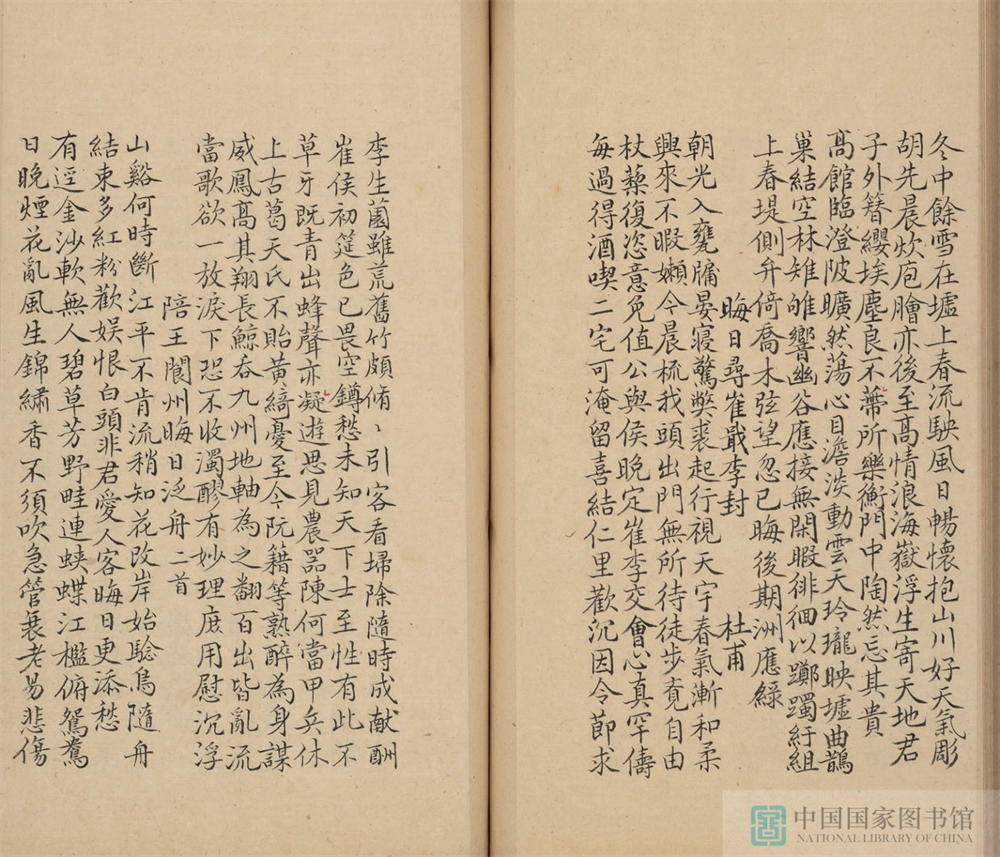 冬中餘雪在墟上春流駛風日暢懷抱山川好天氣彫
胡先晨炊庖膾亦後至高情浪海嶽浮生寄天地君
子外簪纓埃塵良不蔕所樂衡門中陶然忘其貴
高館臨澄陂曠然蕩心目澹淡動雲天玲瓏映墟曲鵲
巢結空林雉雊響幽谷應接無閑暇徘徊以躑躅紆組
上春堤側弁倚喬木弦望忽已晦後期洲應綠
晦日尋崔戢李封 杜甫
朝光入甕牖晏寢驚弊裘起行視天宇春氣漸和柔
興來不暇嬾今晨梳我頭出門無所待徒步覓自由
杖藜復恣意免值公與侯晚定崔李交會心真罕儔
每過得酒喫二宅可淹留喜結仁里歡沉因令節求
李生園雖荒舊竹頗脩〻引客看掃除隨時成献酬
崔侯初筵色已畏空鐏愁未知天下士至性有此不
草牙既青出蜂聲亦凝遊思見農器陳何當甲兵休
上古葛天氏不貽黄綺憂至今阮籍等熟醉為身謀
威鳳高其翔長鯨吞九州地軸為之翻百出皆亂流
當歌欲一放淚下恐不收濁醪有妙理庶用慰沉浮
陪王閬州晦日泛舟二首
山谿何時斷江平不肯流稍知花改岸始驗鳥隨舟
結束多紅粉歡娱恨白頭非君愛人客晦日更添愁
有逕金沙軟無人碧草芳野畦連蛺蝶江檻俯鴛鴦
日晚煙花亂風生錦繡香不須吹急管衰老易悲傷
中国国家图书馆
NATIONAL LIBRARY OF CHINA